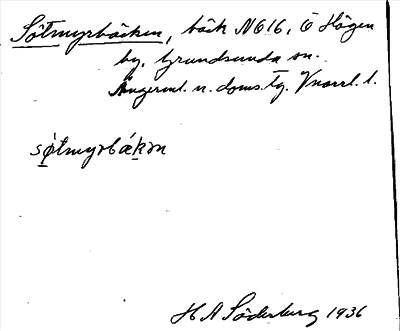 Sötmyrbäcken, bäck NG16, Ö Högen
by, Grundsunda sn.
Ångerml. n. doms. tg. Vnorrl. l.
sötmyrbäkən
H A Söderberg 1936